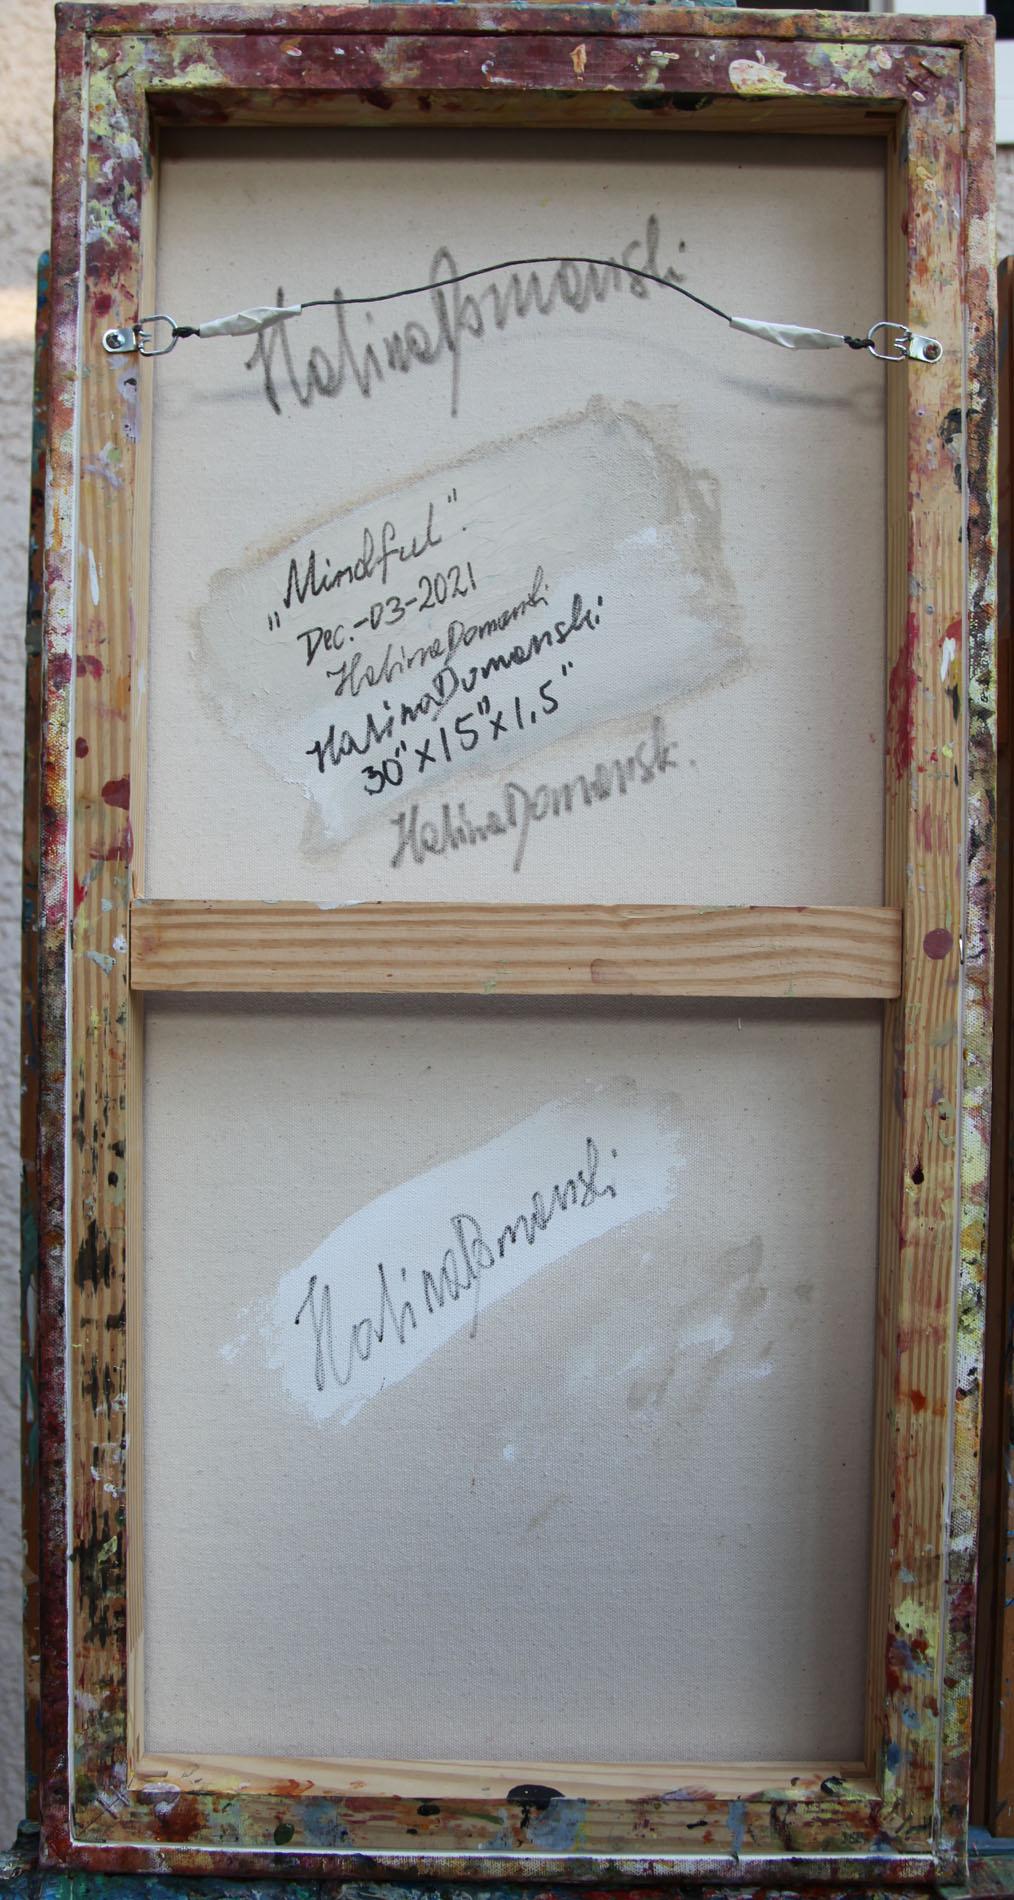 Halina Domanski
"Mindful".
Dec.-03-2021
Halina Domanski
Halina Domanski
30"x15"x1,5"
Halina Domansk.
Halina Domanski